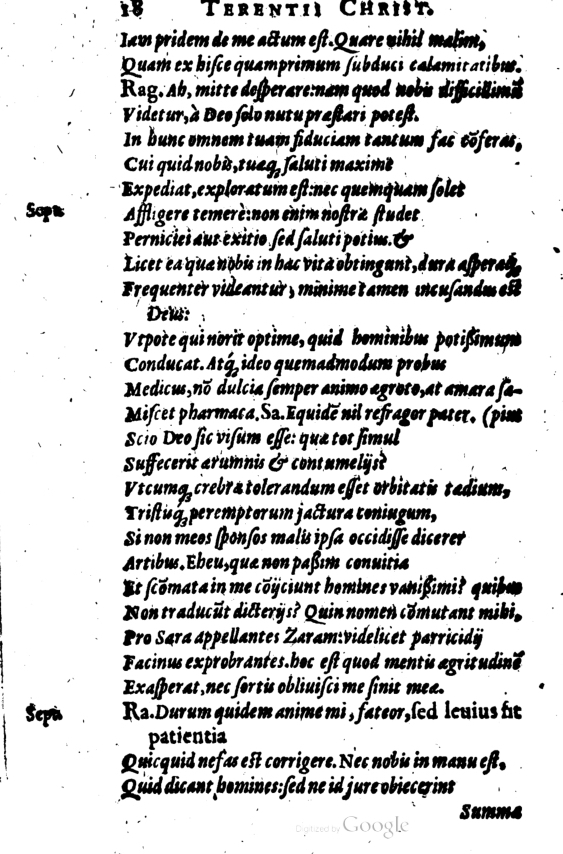 18 TERENTII CHRIST.
Iam pridem de me actum est. Quare nihil malim,
Quam ex hisce quamprimum subduci calamitatibus.
Rag. Ah, mitte desperare: nam quod nobis difficillimū
Videtur, à Deo solo nutu præstari potest.
In hunc omnem tuam fiduciam tantum fac cōferas,
Cui quid nobis, tuæq; saluti maximè
Expediat, exploratum est: nec quemquam solet
Sept: Affligere temerè: non enim nostræ studet
Perniciei aut exitio sed saluti potius. &
Licet ea quæ nobis in hac vita obtingunt, dura asperaq;
Frequenter videantur, minime tamen incusandus est
Deus:
Vtpote qui norit optime, quid hominibus potißimum
Conducat. Atq; ideo quemadmodum probus
Medicus, nō dulcia semper animo ægroto, at amara sæ-
Miscet pharmaca. Sa. Equidē nil refragor pater. (pius
Scio Deo sic visum esse: quæ tot simul
Suffecerit ærumnis & contumelijs?
Vtcumq; crebræ tolerandum esset orbitatis tædium,
Tristiūq; peremptorum jactura coniugum,
Si non meos sponsos malis ipsa occidisse dicerer
Artibus. Eheu, quæ non paßim conuitia
Et scōmata in me cōijciunt homines vanißimi? quibus
Non traducūt dicterijs? Quin nomen cōmutant mihi,
Pro Sara appellantes Zaram: videlicet parricidij
Facinus exprobrantes. hoc est quod mentis ægritudinē
Exasperat, nec sortis obliuisci me sinit meæ.
Septa Ra. Durum quidem anime mi, fateor, sed leuius fit
patientia
Quicquid nefas est corrigere. Nec nobis in manu est,
Quid dicant homines: sed ne id jure obiecerint
Summa
Digitized by Google